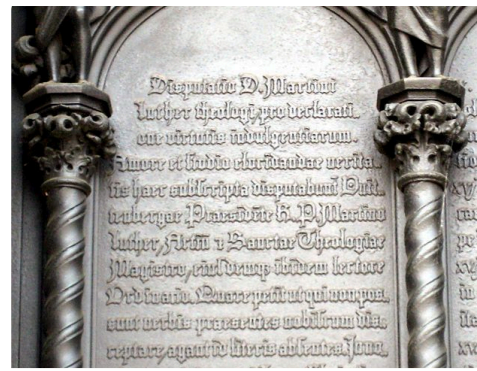 Disputatio D. Martini
Luther theologi, pro declarati-
one virtutis indulgentiarum.
Amore et studio elucidandae verita-
tis haec subscripta disputabunt Vuit-
tenbergae Praesidente R. P. Martino
Luther, Artium et Sacrae Theologiae
Magistro, eiusdemque ibidem lectore
Ordinario. Quare petit ut qui non pos-
sunt verbis praesentes nobiscum dis-
ceptare, agant id literis absentes. In no-